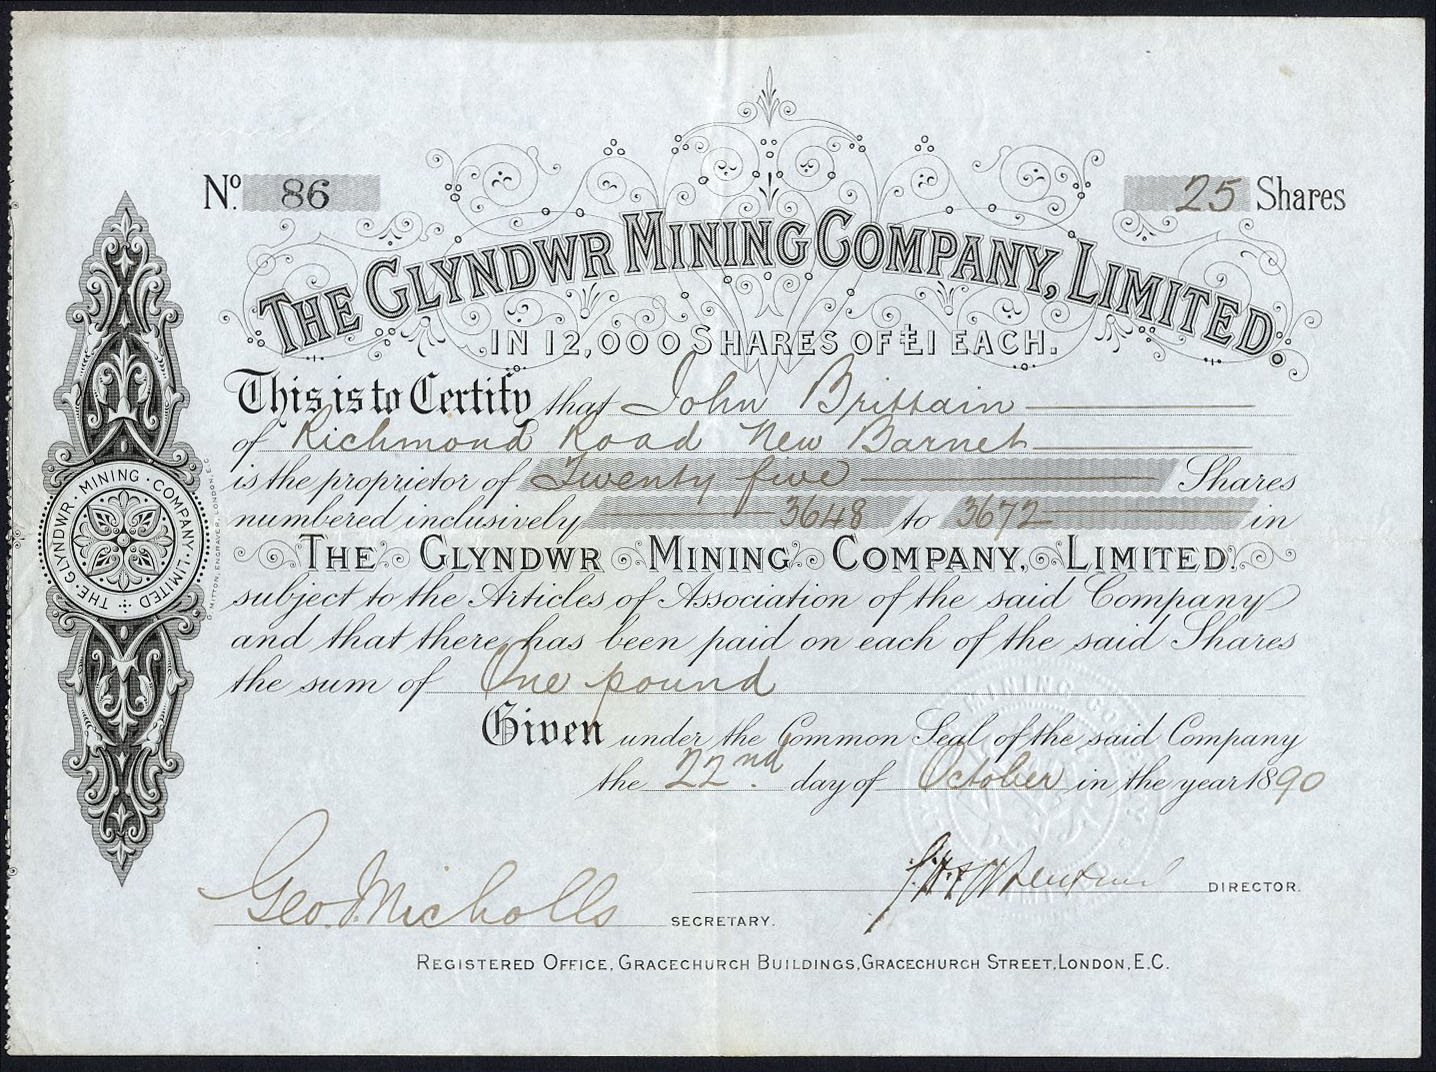 No. 86
25 Shares
THE GLYNDWR MINING COMPANY, LIMITED.
IN 12,000 SHARES OF £1 EACH.
This is to Certify that John Brittain
of Richmond Road New Barnet
is the proprietor of Twenty five Shares
numbered inclusively 3648 to 3672 in
THE GLYNDWR MINING COMPANY, LIMITED.
subject to the Articles of Association of the said Company
and that there has been paid on each of the said Shares
the sum of One pound
Given under the Common Seal of the said Company
the 22nd. day of October in the year 1890
DIRECTOR.
Geo. J. Nicholls SECRETARY.
REGISTERED OFFICE, GRACECHURCH BUILDINGS, GRACECHURCH STREET, LONDON, E.C.
THE GLYNDWR · MINING · COMPANY · LIMITED
G. MITTON, ENGRAVER, LONDON, E.C.
MINING COMPANY